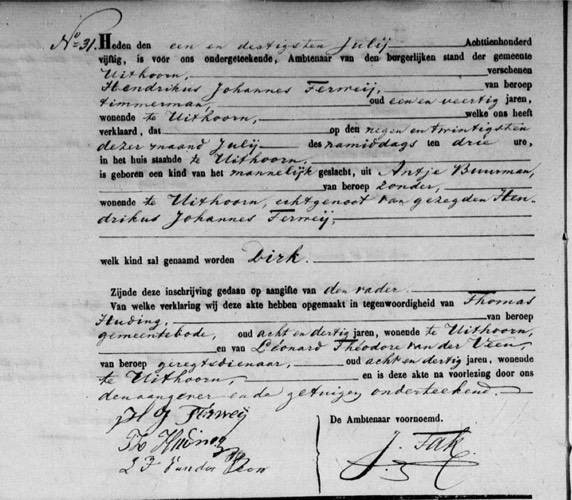 No 31. Heden den een en dertigsten Julij Achttienhonderd
vijftig, is voor ons ondergeteekende, Ambtenaar van den burgerlijken stand der gemeente
Uithoorn, verschenen
Hendrikus Johannes Ferweij, van beroep
timmerman, oud een en veertig jaren,
wonende te Uithoorn, welke ons heeft
verklaard, dat op den negen en twintigsten
dezer maand Julij des namiddags ten drie ure,
in het huis staande te Uithoorn,
is geboren een kind van het mannelijk geslacht, uit Antje Buurman,
van beroep zonder,
wonende te Uithoorn, echtgenoot van gezegden Hen-
drikus Johannes Ferweij,
welk kind zal genaamd worden Dirk.
Zijnde deze inschrijving gedaan op aangifte van den vader.
Van welke verklaring wij deze akte hebben opgemaakt in tegenwoordigheid van Thomas
Huding, van beroep
gemeentebode, oud acht en dertig jaren, wonende te Uithoorn,
en van Léonard Théodore van der Veen,
van beroep geregtsdienaar, oud acht en dertig jaren, wonende
te Uithoorn, en is deze akte na voorlezing door ons
den aangever en de getuigen onderteekend.
H J Ferweij
De Ambtenaar voornoemd.
Th Huding
J. Tak
L T van der Veen